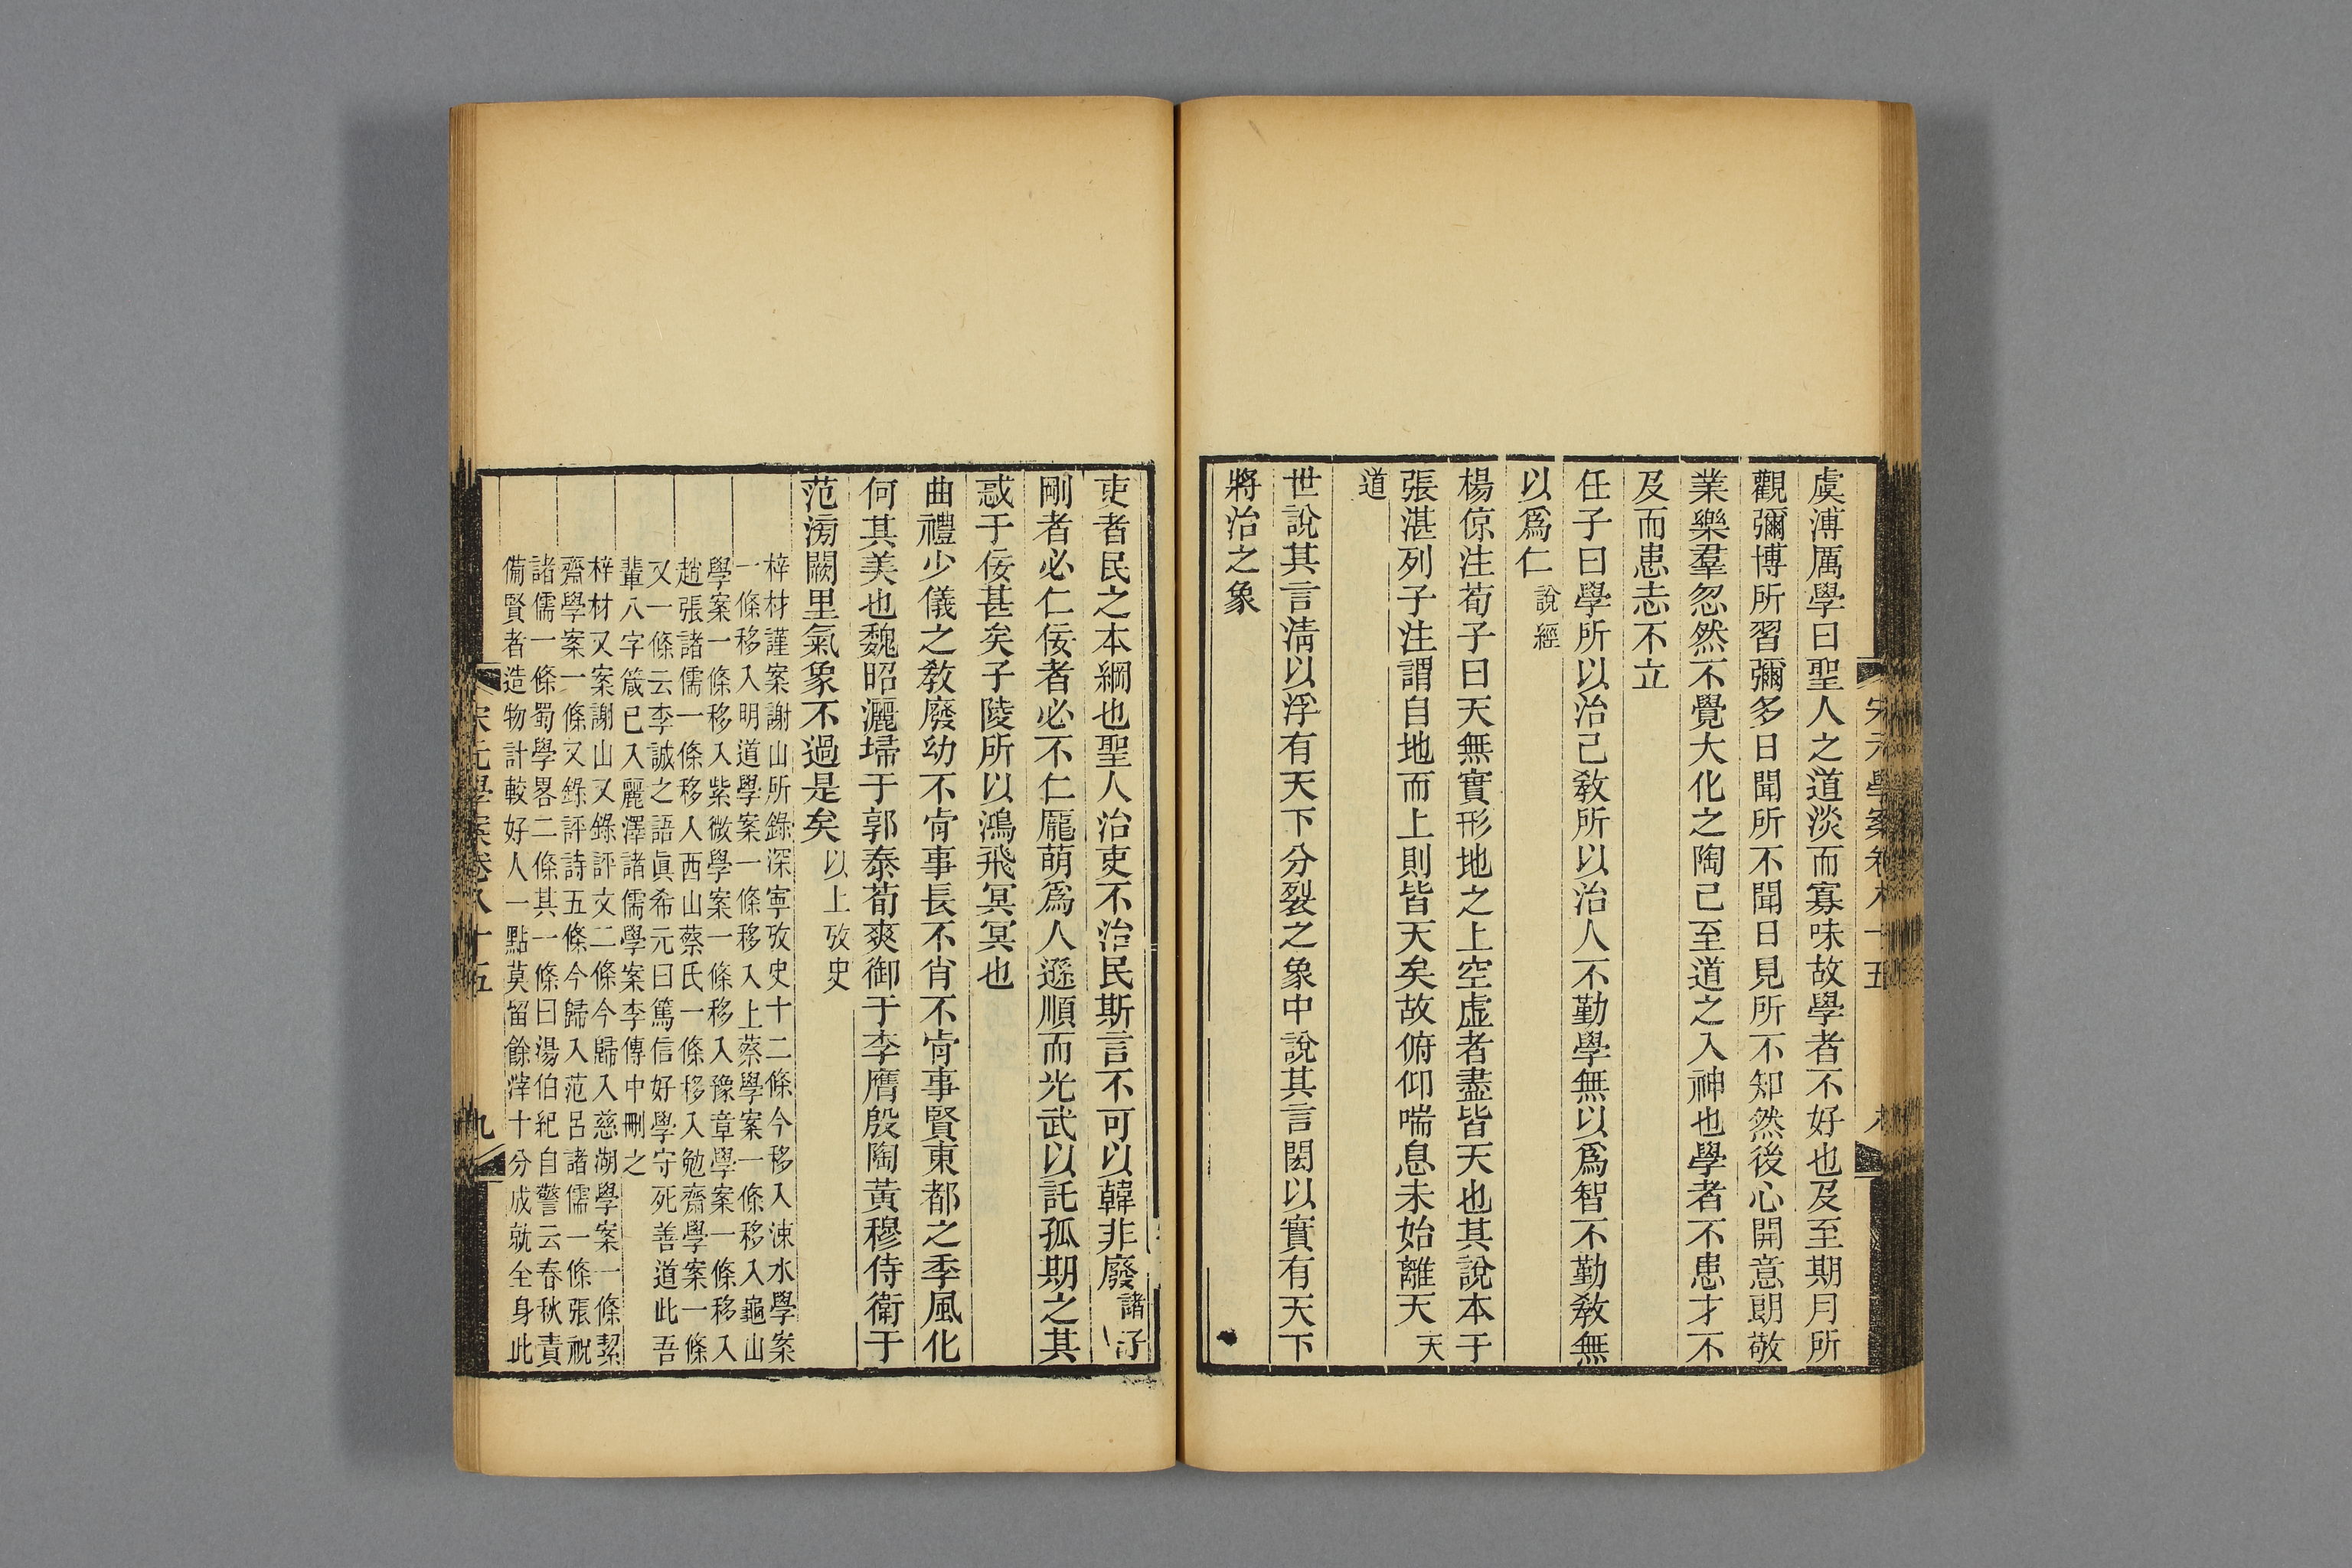 虞溥厲學曰聖人之道淡而寡味故學者不好也及至期月所
觀彌博所習彌多日聞所不聞日見所不知然後心開意朗敬
業樂羣忽然不覺大化之陶己至道之入神也學者不患才不
及而患志不立
任子曰學所以治己敎所以治人不勤學無以爲智不勤敎無
以爲仁說經
楊倞注荀子曰天無實形地之上空虛者盡皆天也其說本于
張湛列子注謂自地而上則皆天矣故俯仰喘息未始離天天
道
世說其言淸以浮有天下分裂之象中說其言閎以實有天下
將治之象
吏者民之本綱也聖人治吏不治民斯言不可以韓非廢諸子
剛者必仁佞者必不仁龐萌爲人遜順而光武以託孤期之其
惑于佞甚矣子陵所以鴻飛冥冥也
曲禮少儀之敎廢幼不肯事長不肖不肯事賢東都之季風化
何其美也魏昭灑埽于郭泰荀爽御于李膺殷陶黃穆侍衛于
范滂闕里氣象不過是矣以上攷史
梓材謹案謝山所錄深寧攷史十二條今移入涑水學案
一條移入明道學案一條移入上蔡學案一條移入龜山
學案一條移入紫微學案一條移入豫章學案一條移入
趙張諸儒一條移入西山蔡氏一條移入勉齋學案一條
又一條云李誠之語眞希元曰篤信好學守死善道此吾
輩八字箴已入麗澤諸儒學案李傳中刪之
梓材又案謝山又錄評文二條今歸入慈湖學案一條絜
齋學案一條又錄評詩五條今歸入范呂諸儒一條張祝
諸儒一條蜀學畧二條其一條曰湯伯紀自警云春秋責
備賢者造物計較好人一點莫留餘滓十分成就全身此
宋元學案卷八十五
九